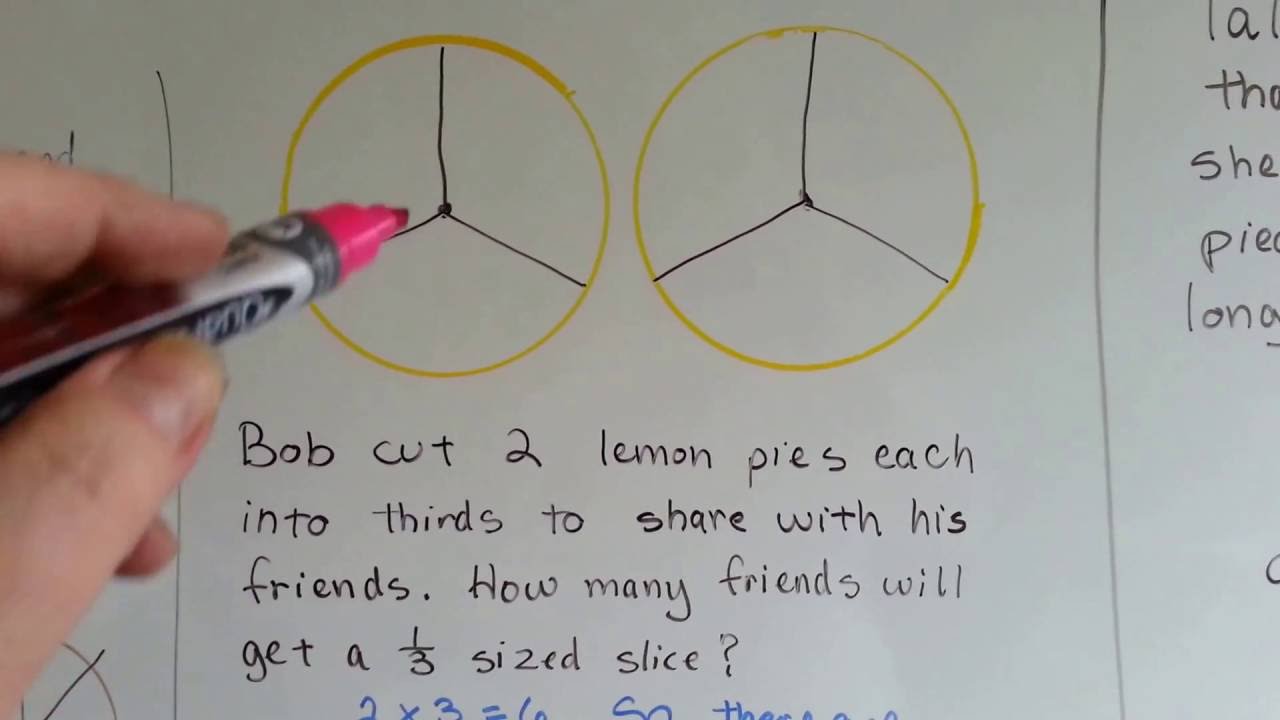 Bob cut 2 lemon pies each
into thirds to share with his
friends. How many friends will
get a 1/3 sized slice?
2 x 3 = 6 So there are
she
long